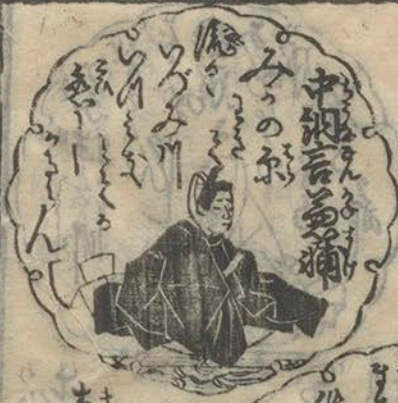 中納言兼輔
みかの原
わきて
流るゝ
いづみ川
いつみき
とてか
恋し
かるらん